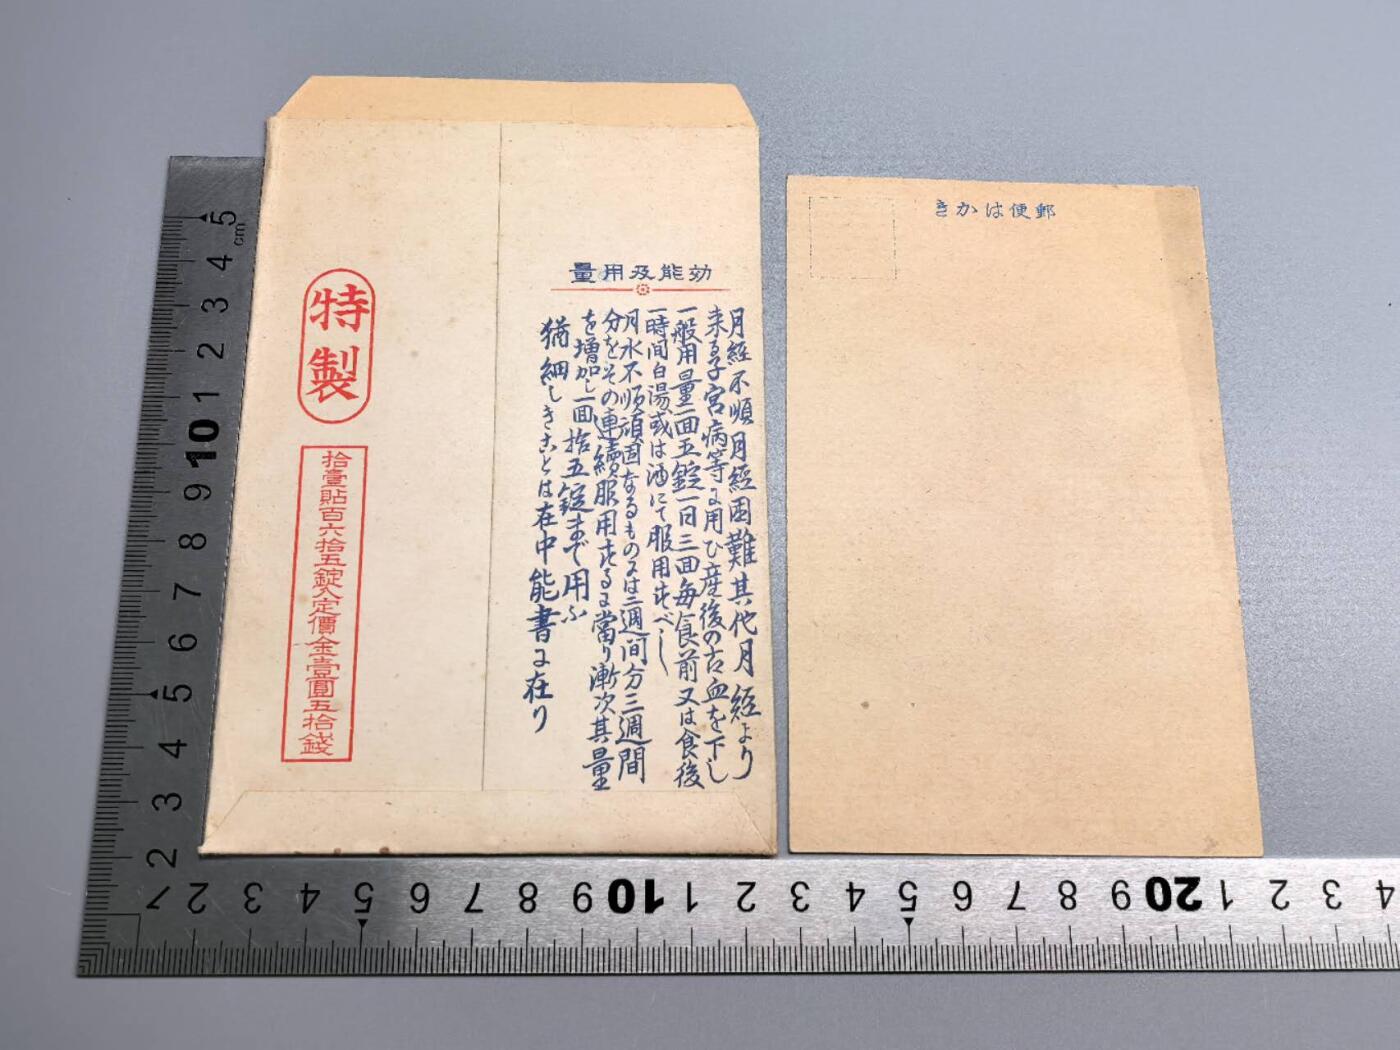 効能及用量
月經不順月經困難其他月經より
来る子宮病等に用ひ産後の古血を下し
一般用量一回五錠一日三回毎食前又は食後
一時間白湯或は酒にて服用すべし
月水不順頑固なるものには二週间分三週間
分をその連續服用するに當り漸次其量
を増加し一回拾五錠まで用ふ
猶細しきことは在中能書に在り
特製
拾壹貼百六拾五錠入定價金壹圓五拾錢
郵便はかき
5
cm
4
3
2
1
10
9
8
7
6
5
4
3
2
2
3
4
5
6
7
8
9
10
1
2
3
4
5
6
7
8
9
20
1
2
3
4